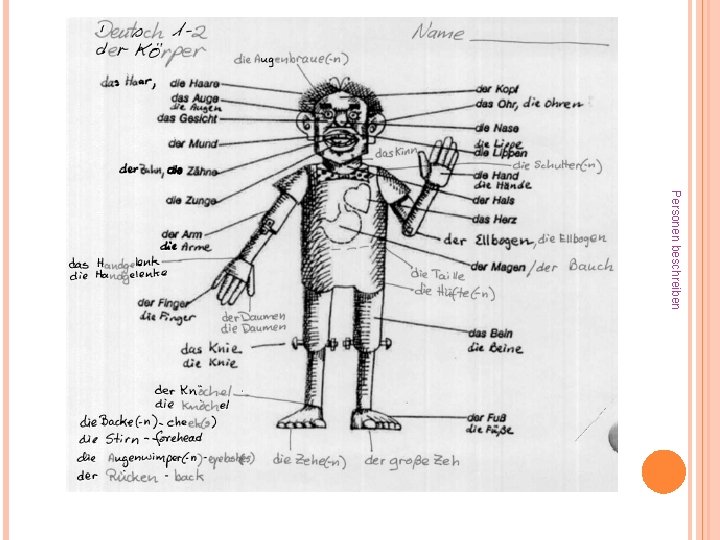 Deutsch 1-2
Name
der Körper
die Augenbraue(-n)
das Haar, die Haare
der Kopf
das Auge
die Augen
das Ohr, die Ohren
das Gesicht
die Nase
der Mund
die Lippe
die Lippen
das Kinn
die Schulter(-n)
der Zahn, die Zähne
die Hand
die Hände
die Zunge
der Hals
das Herz
der Arm
die Arme
der Ellbogen, die Ellbogen
das Handgelenk
die Handgelenke
die Taille
der Magen / der Bauch
die Hüfte(-n)
der Finger
die Finger
der Daumen
die Daumen
das Bein
die Beine
das Knie
die Knie
der Knöchel
die Knöchel
die Backe(-n) - cheek(s)
der Fuß
die Füße
die Stirn - forehead
die Augenwimper(-n) - eyelash(es)
die Zehe(-n)
der große Zeh
der Rücken - back
Personen beschreiben